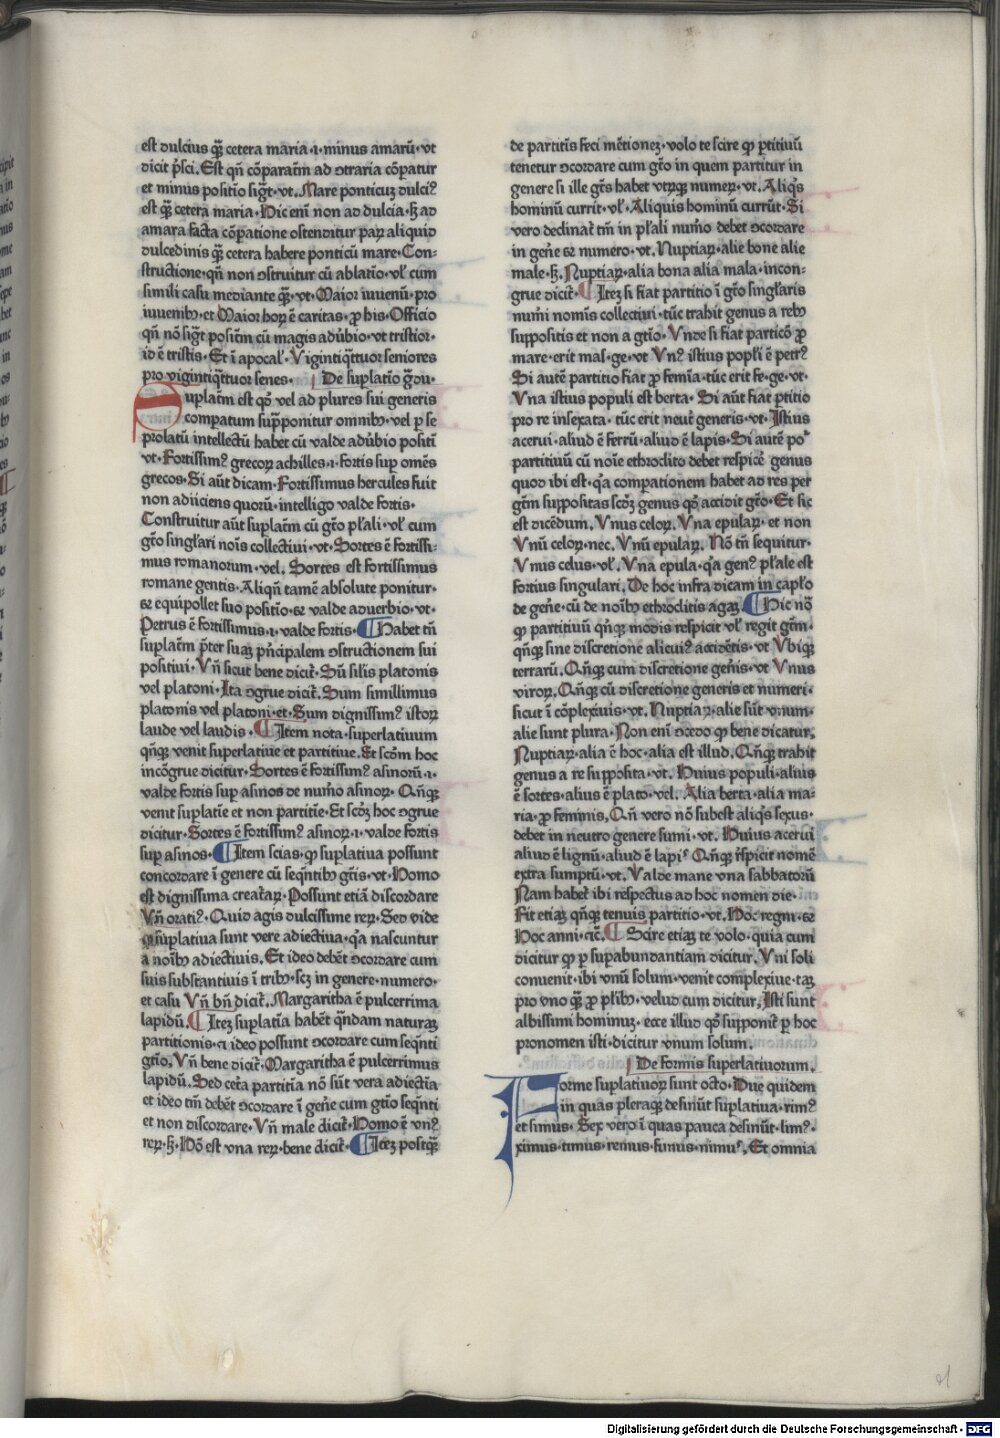 est dulcius qȝ̃ cetera maria·ı·minus amarũ·vt
dicit p̃sci. Est qñ cõparatiũ ad ↄtraria cõpatur
et minus positio sigt̃·vt. Mare ponticuȝ dulciꝰ
est qȝ̃ cetera maria·Hic eñi non ad dulcia·sȝ ad
amara facta cõpatione ostenditur paꝝ aliquid
dulcedinis qȝ̃ cetera habere ponticũ mare·Con-
structione·qñ non ↄstruitur cũ ablatio·vl̃ cum
simili casu mediante qȝ̃·vt·Maior iuuenũ·pro
iuuenibꝫ·et Maior hoꝝ ẽ caritas·ꝓ his·Officio
qñ nõ sigt̃ positiũ cũ magis adũbio·vt tristior·
id ẽ tristis·Et ĩ apocal̃·Vigintiqt̃tuor seniores
pro vigintiqt̃tuor senes· De suplatio g̃du·
Suplatiũ est qõ vel ad plures sui generis
compatum supponitur omnibꝫ·vel ꝑ se
prolatũ intellectũ habet cũ valde adũbio positi
vt·Fortissimꝰ grecoꝝ achilles·ı·fortis suꝑ omẽs
grecos·Si aũt dicam·Fortissimus hercules fuit
non adiiciens quorũ·intelligo valde fortis·
Construitur aũt suplatiũ cũ gt̃io pl̃ali·vl̃ cum
gt̃io singl̃ari nois collectiui·vt·Sortes ẽ fortissi-
mus romanorum·vel. Sortes est fortissimus
romane gentis·Aliqñ tamẽ absolute ponitur·
⁊ equipollet suo positio·⁊ valde aduerbio·vt·
Petrus ẽ fortissimus·ı·valde fortis· Habet tñ
suplatiũ p̃ter suaȝ pñcipalem ↄstructionem sui
positiui·Vñ sicut bene dicit̃·Sũ silis platonis
vel platoni·Ita ↄgrue dicit̃. Sum simillimus
platonis vel platoni·et·Sum dignissimꝰ istoꝝ
laude vel laudis· Item nota·superlatiuum
qñqȝ venit superlatiue et partitiue. Et scõm hoc
incõgrue dicitur·Sortes ẽ fortissimꝰ asinorũ·ı·
valde fortis suꝑ asinos de numo asinoꝝ·Qñqȝ
venit suplatie et non partitie·Et scõȝ hoc ↄgrue
dicitur·Sortes ẽ fortissimꝰ asinoꝝ·ı·valde fortis
suꝑ asinos· Item scias·ꝙ suplatiua possunt
concordare ĩ genere cũ seqñtibꝫ gt̃is·vt·Homo
est dignissima creataꝝ·Possunt etiã discordare
Vñ oratiꝰ·Quid agis dulcissime reꝝ·Sed vide
ꝙ suplatiua sunt vere adiectiua·qa nascuntur
a noibꝫ adiectiuis. Et ideo debẽt ↄcordare cum
suis substantiuis ĩ tribꝫ·scȝ in genere·numero·
et casu Vñ bñ dicit̃. Margaritha ẽ pulcerrima
lapidũ. Iteȝ suplatia habẽt qñdam naturaȝ
partitionis·⁊ ideo possunt ↄcordare cum seqñti
gt̃io. Vñ bene dicit̃·Margaritha ẽ pulcerrimus
lapidũ. Sed ceta partitia nõ sũt vera adiectia
et ideo tm̃ debẽt ↄcordare ĩ geñe cum gt̃io seqñti
et non discordare·Vñ male dicit̃·Homo ẽ vnꝰ
reꝝ·sȝ·Hõ est vna reꝝ·bene dicit̃· Iteȝ postqȝ̃
de partitis feci mẽtioneȝ·volo te scire ꝙ ꝑtitiuũ
tenetur ↄcordare cum gt̃io in quem partitur in
genere si ille gt̃s habet vtꝝqȝ numeꝝ·vt. Aliqs̃
hominũ currit·vl̃·Aliquis hominũ currũt·Si
vero declinat̃ tm̃ in pl̃ali numo debet ↄcordare
in geñe ⁊ numero·vt. Nuptiaꝝ·alie bone alie
male·sȝ. Nuptiaꝝ·alia bona alia mala·incon-
grue dicit̃· Iteȝ si fiat partitio ĩ gt̃io singl̃aris
numi nomis collectiui·tũc trahit genus a rebꝫ
suppositis et non a gt̃io·Vnde si fiat particõ ꝓ
mare·erit mas·ge·vt Vnꝰ istius popl̃i ẽ petrꝰ
Si autẽ partitio fiat ꝓ femĩa·tũc erit fe·ge·vt·
Vna istius populi est berta·Si aũt fiat ꝑtitio
pro re insexata·tũc erit neut̃ generis·vt·Istius
acerui·aliud ẽ ferrũ·aliud ẽ lapis·Si autẽ po
partitiuũ cũ noie ethroclito debet respicẽ genus
quod ibi est·qa compationem habet ad res per
gt̃m suppositas scõȝ genus qõ accidit gt̃io·Et sic
est dicẽdum. Vnus celoꝝ. Vna epulaꝝ·et non
Vnũ celoꝝ·nec. Vnũ epulaꝝ. Nõ tñ sequitur·
Vnus celus·vl̃. Vna epula·qa genꝰ pl̃ale est
fortius singulari. De hoc infra dicam in capl̃o
de geñe·cũ de noibꝫ ethroclitis agaȝ Hic nõ
ꝙ partitiuũ qñqȝ modis respicit vl̃ regit gt̃m·
qñqȝ sine discretione alicuiꝰ accidẽtis·vt Vbiqȝ
terrarũ. Qñqȝ cum discretione geñis·vt Vnus
viroꝝ. Qñqȝ cũ discretione generis et numeri·
sicut ĩ cõplexiuis·vt. Nuptiaꝝ·alie sũt vnum·
alie sunt plura·Non eñi ↄcedo ꝙ bene dicatur.
Nuptiaꝝ·alia ẽ hoc·alia est illud. Qñqȝ trahit
genus a re supposita·vt. Huius populi·alius
ẽ sortes·alius ẽ plato·vel. Alia berta·alia ma-
ria·ꝓ feminis. Qñ vero nõ subest aliqs̃ sexus·
debet in neutro genere sumi·vt. Huius acerui
aliud ẽ lignũ·aliud ẽ lapis Qñqȝ respicit nomẽ
extra sumptũ·vt. Valde mane vna sabbatorũ
Nam habet̃ ibi respectus ad hoc nomen die·
Fit etiaȝ qñqȝ tenuis partitio·vt. Hoc regni·⁊
Hoc anni·⁊c̃. Scire etiaȝ te volo·quia cum
dicitur ꝙ ꝑ suꝑabundantiam dicitur. Vni soli
conuenit·ibi vnũ solum·venit complexiue·taȝ
pro vno qȝ̃ ꝓ pl̃ibꝫ·velud cum dicitur. Isti sunt
albissimi hominuȝ·ecce illud qõ supponit̃ ꝑ hoc
pronomen isti·dicitur vnum solum.
De formis superlatiuorum.
Forme suplatiuoꝝ sunt octo·Due quidem
in quas pleraqȝ desinũt suplatiua·rimꝰ
et simus·Sex vero ĩ quas pauca desinũt·limꝰ·
ximus·timus·remus·fimus·nimus. Et omnia
Digitalisierung gefördert durch die Deutsche Forschungsgemeinschaft - DFG